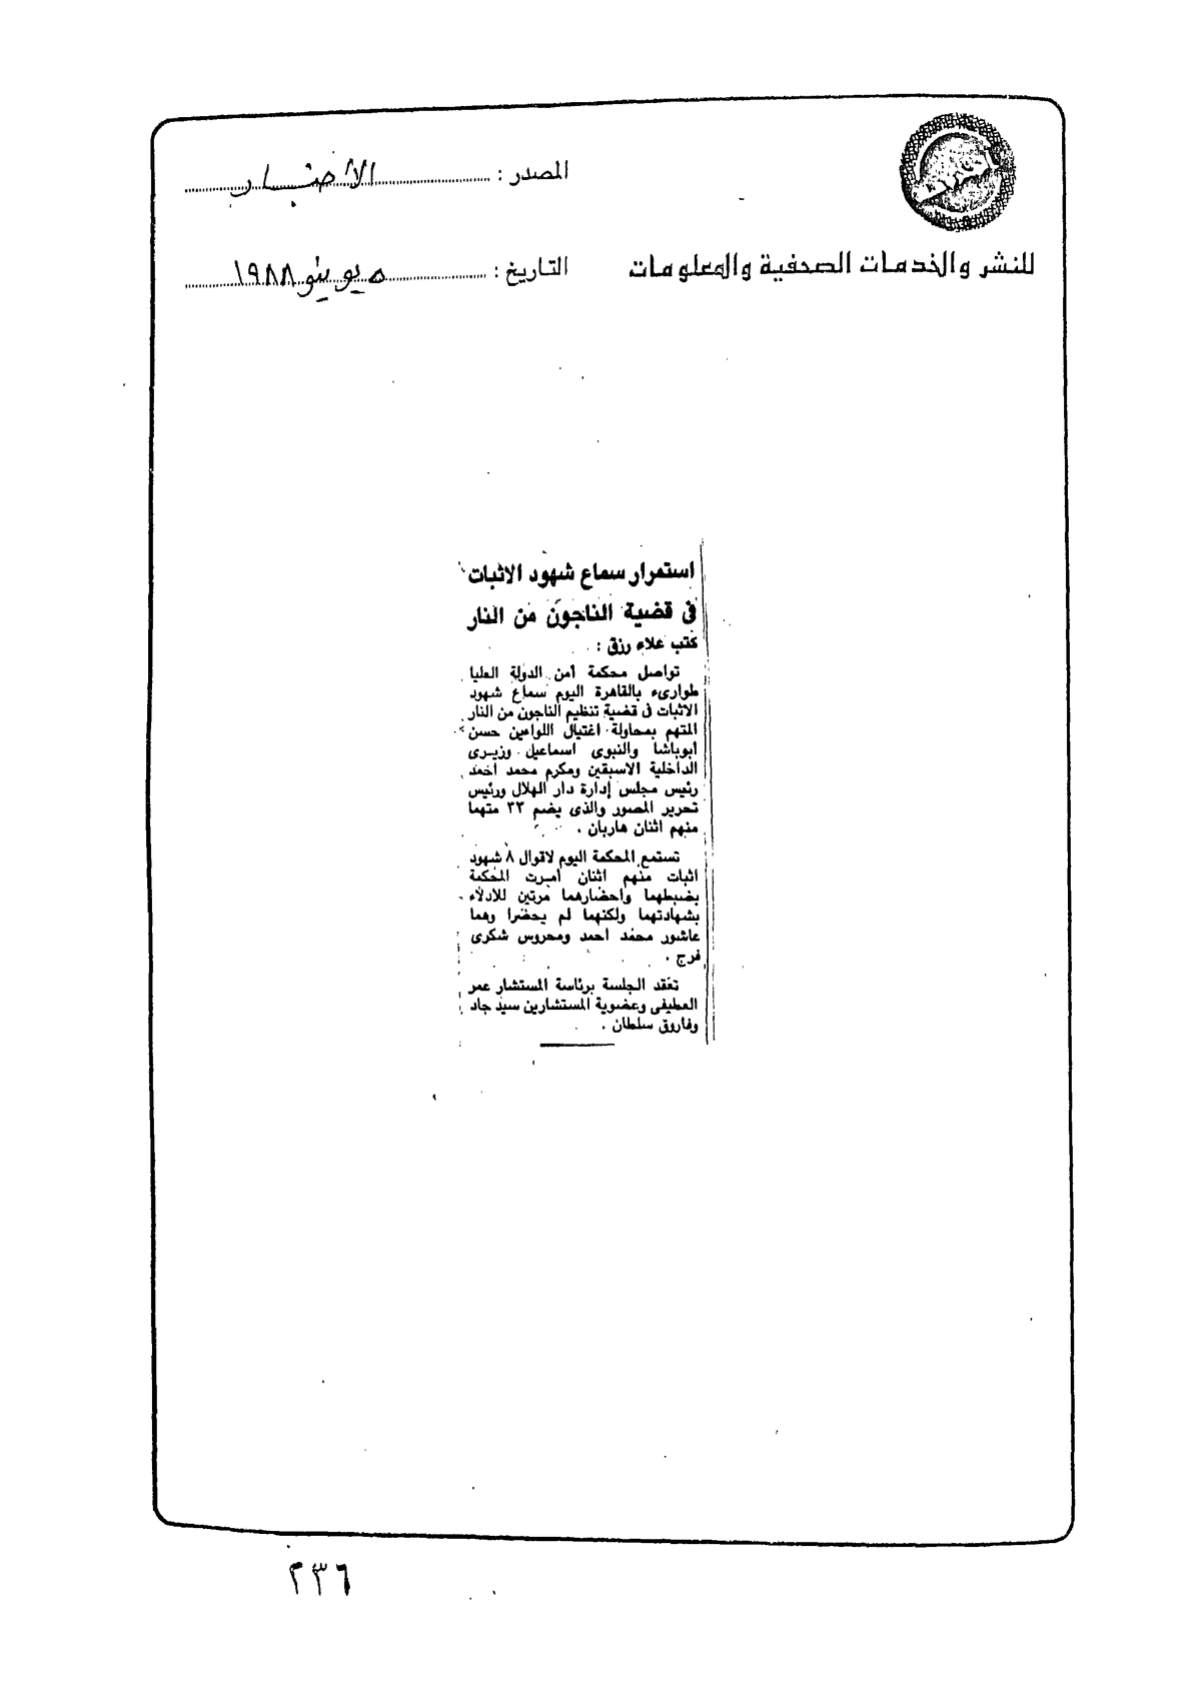 المصدر : الأخبار
للنشر والخدمات الصحفية والمعلومات
التاريخ : ٥ يونيو ١٩٨٨
استمرار سماع شهود الاثبات
فى قضية الناجون من النار
كتب علاء رزق :
تواصل محكمة أمن الدولة العليا
طوارىء بالقاهرة اليوم سماع شهود
الاثبات فى قضية تنظيم الناجون من النار
المتهم بمحاولة اغتيال اللواءين حسن
ابوباشا والنبوى اسماعيل وزيرى
الداخلية الاسبقين ومكرم محمد احمد
رئيس مجلس إدارة دار الهلال ورئيس
تحرير المصور والذى يضم ٣٣ متهما
منهم اثنان هاربان .
تستمع المحكمة اليوم لاقوال ٨ شهود
اثبات منهم اثنان أمرت المحكمة
بضبطهما واحضارهما مرتين للادلاء
بشهادتهما ولكنهما لم يحضرا وهما
عاشور محمد أحمد ومحروس شكرى
فرج .
تعقد الجلسة برئاسة المستشار عمر
العطيفى وعضوية المستشارين سيد جاد
وفاروق سلطان .
٢٣٦